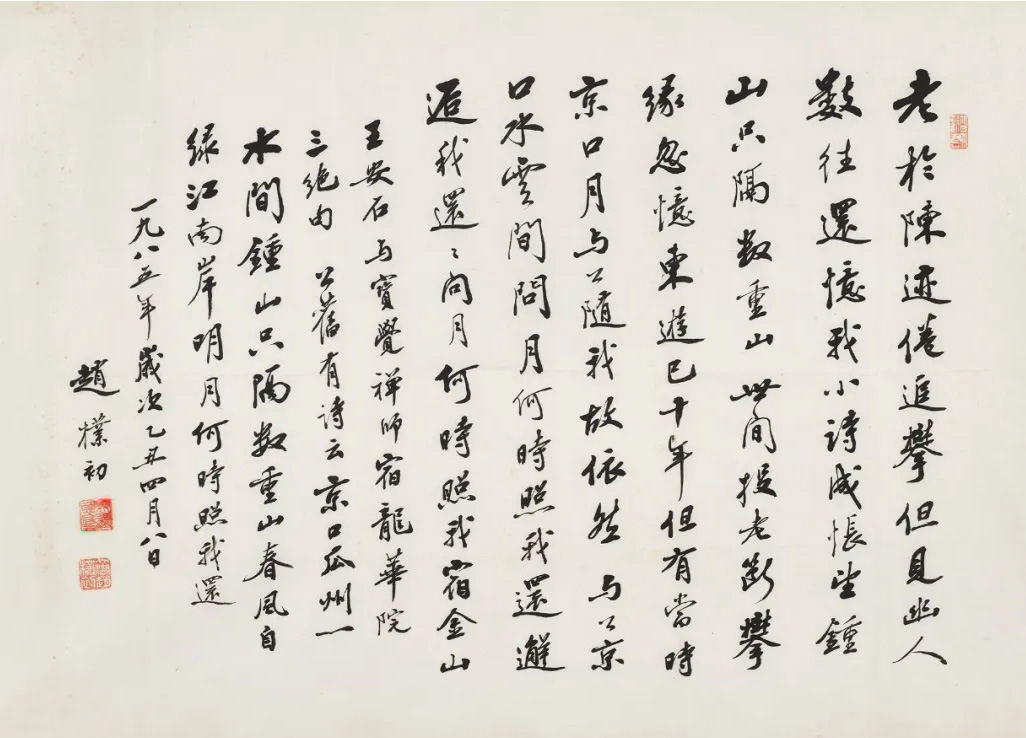 老於陳迹倦追攀但見幽人
數往還憶我小詩成悵望鍾
山只隔數重山世间投老斷攀
緣忽憶東遊已十年但有當時
京口月与公隨我故依然与公京
口水雲間問月何時照我還邂
逅我還〻问月何時照我宿金山
王安石与寶覺禅師宿龍華院
三絶句公舊有詩云京口瓜州一
水間鍾山只隔数重山春風自
绿江南岸明月何時照我還
一九八五年歲次乙丑四月八日
趙樸初